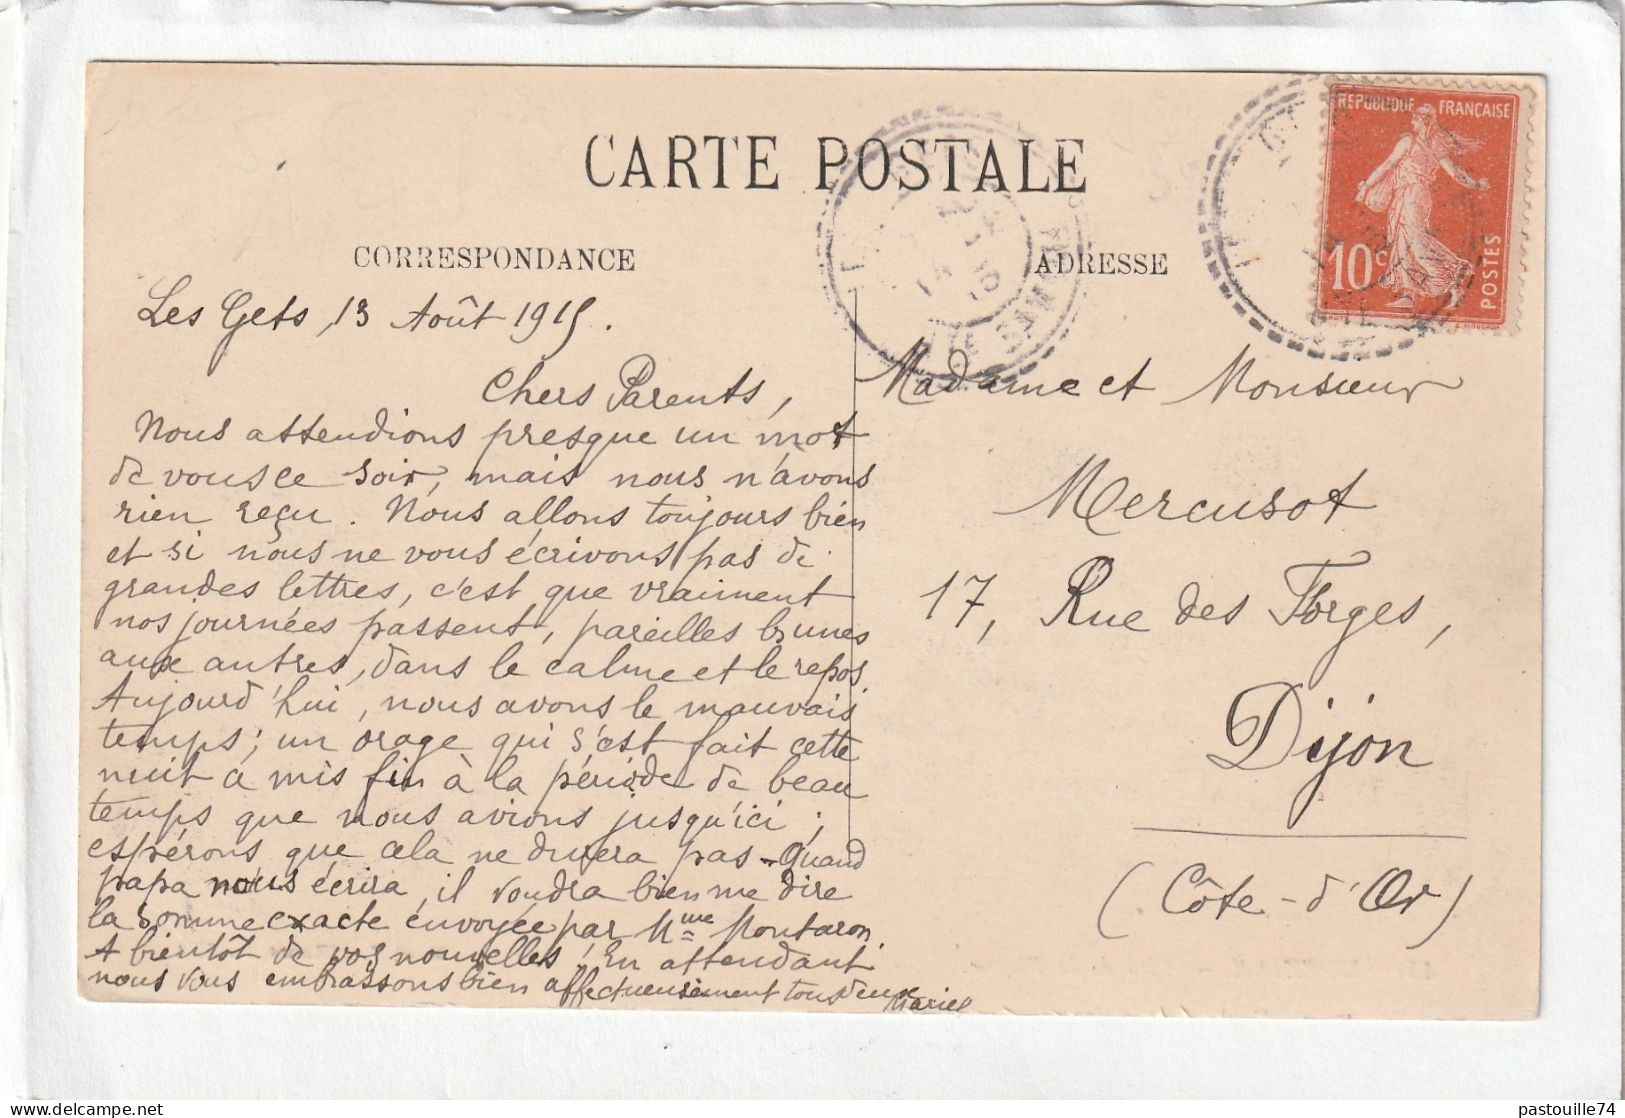 CARTE POSTALE
CORRESPONDANCE
ADRESSE
REPUBLIQUE FRANÇAISE
10c
POSTES
Les Gets, 13 Août 1915.
Chers Parents,
Nous attendions presque un mot
de vous ce soir, mais nous n'avons
rien reçu. Nous allons toujours bien
et si nous ne vous écrivons pas de
grandes lettres, c'est que vraiment
nos journées passent, pareilles les unes
aux autres, dans le calme et le repos.
Aujourd'hui, nous avons le mauvais
temps; un orage qui s'est fait cette
nuit a mis fin à la période de beau
temps que nous avions jusqu'ici;
espérons que cela ne durera pas - Quand
papa nous écrira, il voudra bien me dire
la somme exacte envoyée par Mme Montaron.
A bientôt de vos nouvelles! En attendant
nous vous embrassons bien affectueusement tous deux
Madame et Monsieur
Mercusot
17, Rue des Forges,
Dijon
(Côte-d'Or)
delcampe.net
pastouille74